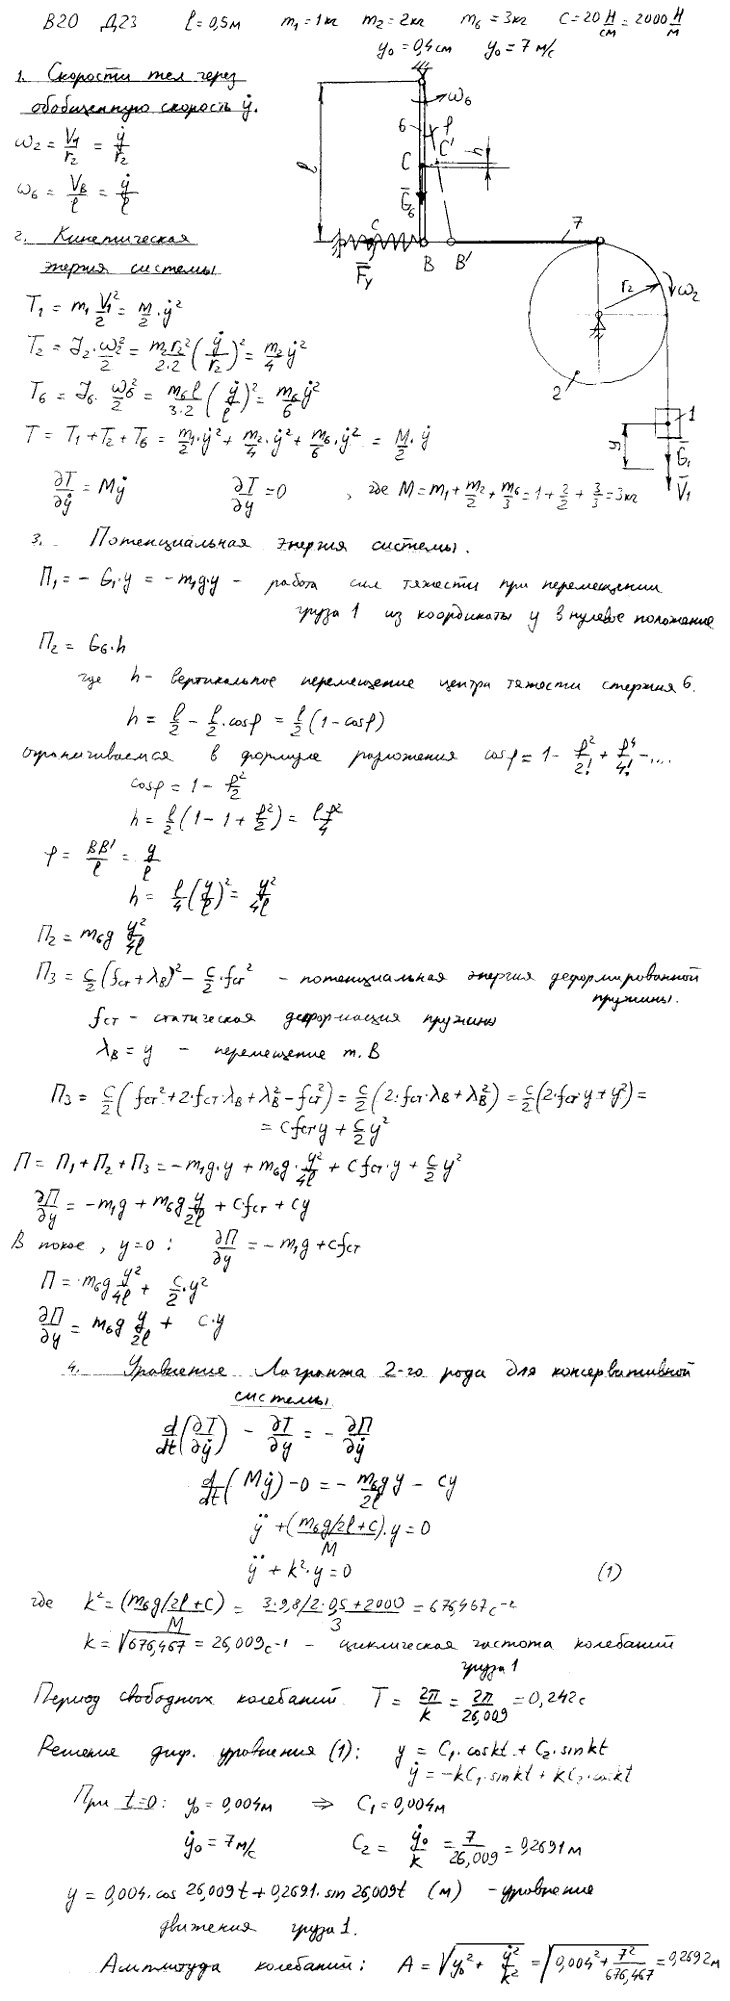 В20 Д23 ℓ=0,5м m₁=1кг m₂=2кг m₆=3кг C=20 Н/см = 2000 Н/м
y₀=0,4см y₀=7м/с
1. Скорости тел через
обобщенную скорость ẏ.
ω₂ = V₁/r₂ = ẏ/r₂
ω₆ = V_B/ℓ = ẏ/ℓ
2. Кинетическая
энергия системы
T₁ = m₁ V₁²/2 = m/2·ẏ²
T₂ = J₂·ω₂²/2 = m₂r₂²/2·2 (ẏ/r₂)² = m₂/4 ẏ²
T₆ = J₆·ω₆²/2 = m₆ℓ/3·2 (ẏ/ℓ)² = m₆/6 ẏ²
T = T₁+T₂+T₆ = m₁/2·ẏ² + m₂/4·ẏ² + m₆/6·ẏ² = M/2·ẏ
∂T/∂ẏ = Mẏ ∂T/∂y = 0 , где M = m₁ + m₂/2 + m₆/3 = 1 + 2/2 + 3/3 = 3кг
ω₆
6
φ
C C'
h
ℓ
G̅₆
C
F̅у
B B'
7
r₂
ω₂
2
1
y
G̅₁
V̅₁
3. Потенциальная энергия системы.
П₁ = − G₁·y = −m₁g·y − работа сил тяжести при перемещении
груза 1 из координаты y в нулевое положение
П₂ = G₆·h
где h − вертикальное перемещение центра тяжести стержня 6.
h = ℓ/2 − ℓ/2·cosφ = ℓ/2 (1−cosφ)
ограничиваемся в формуле разложения cosφ = 1 − φ²/2! + φ⁴/4! − ....
cosφ = 1 − φ²/2
h = ℓ/2 (1−1+φ²/2) = ℓφ²/4
φ = BB'/ℓ = y/ℓ
h = ℓ/4 (y/ℓ)² = y²/4ℓ
П₂ = m₆g y²/4ℓ
П₃ = C/2 (fст + λ_B)² − C/2·fст² − потенциальная энергия деформированной
пружины.
fст − статическая деформация пружины
λ_B = y − перемещение т. В
П₃ = C/2 (fст² + 2·fст·λ_B + λ_B² − fст²) = C/2 (2·fст·λ_B + λ_B²) = C/2 (2·fст·y + y²) =
= C fст y + C/2 y²
П = П₁+П₂+П₃ = −m₁g·y + m₆g·y²/4ℓ + C fст·y + C/2 y²
∂П/∂y = −m₁g + m₆g y/2ℓ + C·fст + Cy
В покое, y=0 : ∂П/∂y = −m₁g + C fст
П = m₆g y²/4ℓ + C/2·y²
∂П/∂y = m₆g y/2ℓ + C·y
4. Уравнение Лагранжа 2-го рода для консервативной
системы
d/dt (∂T/∂ẏ) − ∂T/∂y = − ∂П/∂y
d/dt (Mẏ) − 0 = − m₆g/2ℓ y − Cy
ÿ + (m₆g/2ℓ + C)/M · y = 0
ÿ + k²·y = 0 (1)
где k² = (m₆g/2ℓ + C)/M = 3·9,8/2·0,5+2000/3 = 676,467 с⁻²
k = √676,467 = 26,009 с⁻¹ − циклическая частота колебаний
груза 1
Период свободных колебаний T = 2π/k = 2π/26,009 = 0,242с
Решение диф. уравнения (1): y = C₁·coskt + C₂·sinkt
ẏ = −kC₁·sinkt + kC₂·coskt
При t=0: y₀ = 0,004м ⇒ C₁ = 0,004м
ẏ₀ = 7м/с C₂ = ẏ₀/k = 7/26,009 = 0,2691м
y = 0,004·cos 26,009t + 0,2691·sin 26,009t (м) − уравнение
движения груза 1.
Амплитуда колебаний: A = √(y₀² + ẏ²/k²) = √(0,004² + 7²/676,467) = 0,2692м